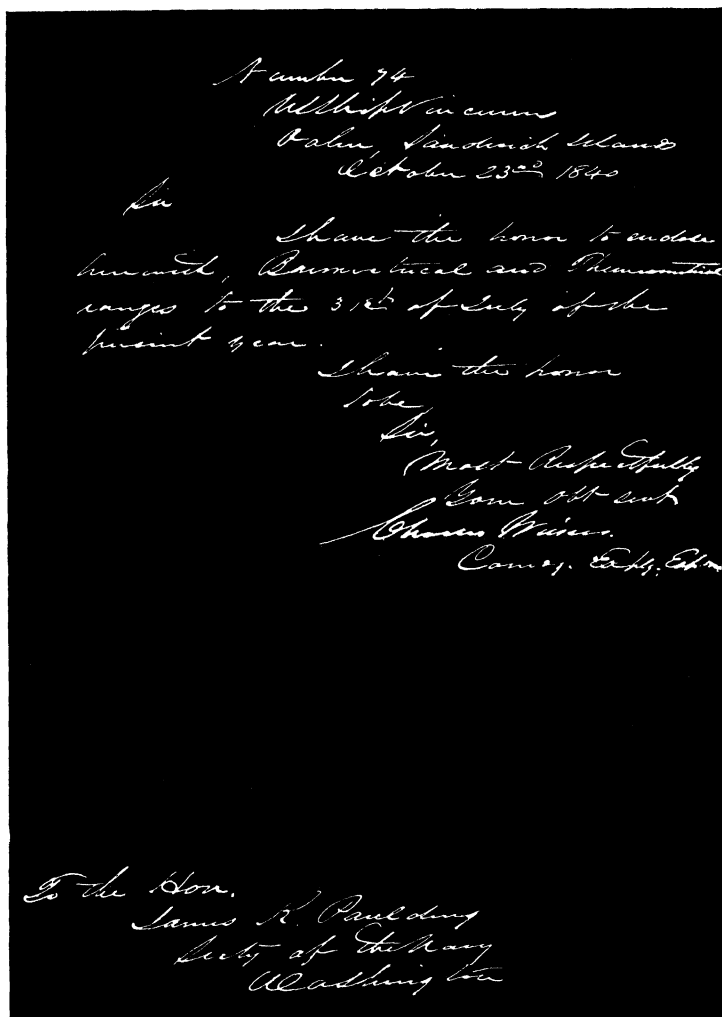 Number 74
US Ship Vincennes
Oahu, Sandwich Islands
October 23rd 1840
Sir
I have the honor to enclose
herewith, Barometrical and Thermometrical
ranges to the 31st of July of the
present year.
I have the honor
to be,
Sir,
Most Respectfully
Your obt servt
Charles Wilkes.
Comdg. Explg. Expn
To the Hon.
James K. Paulding
Secty of the Navy
Washington